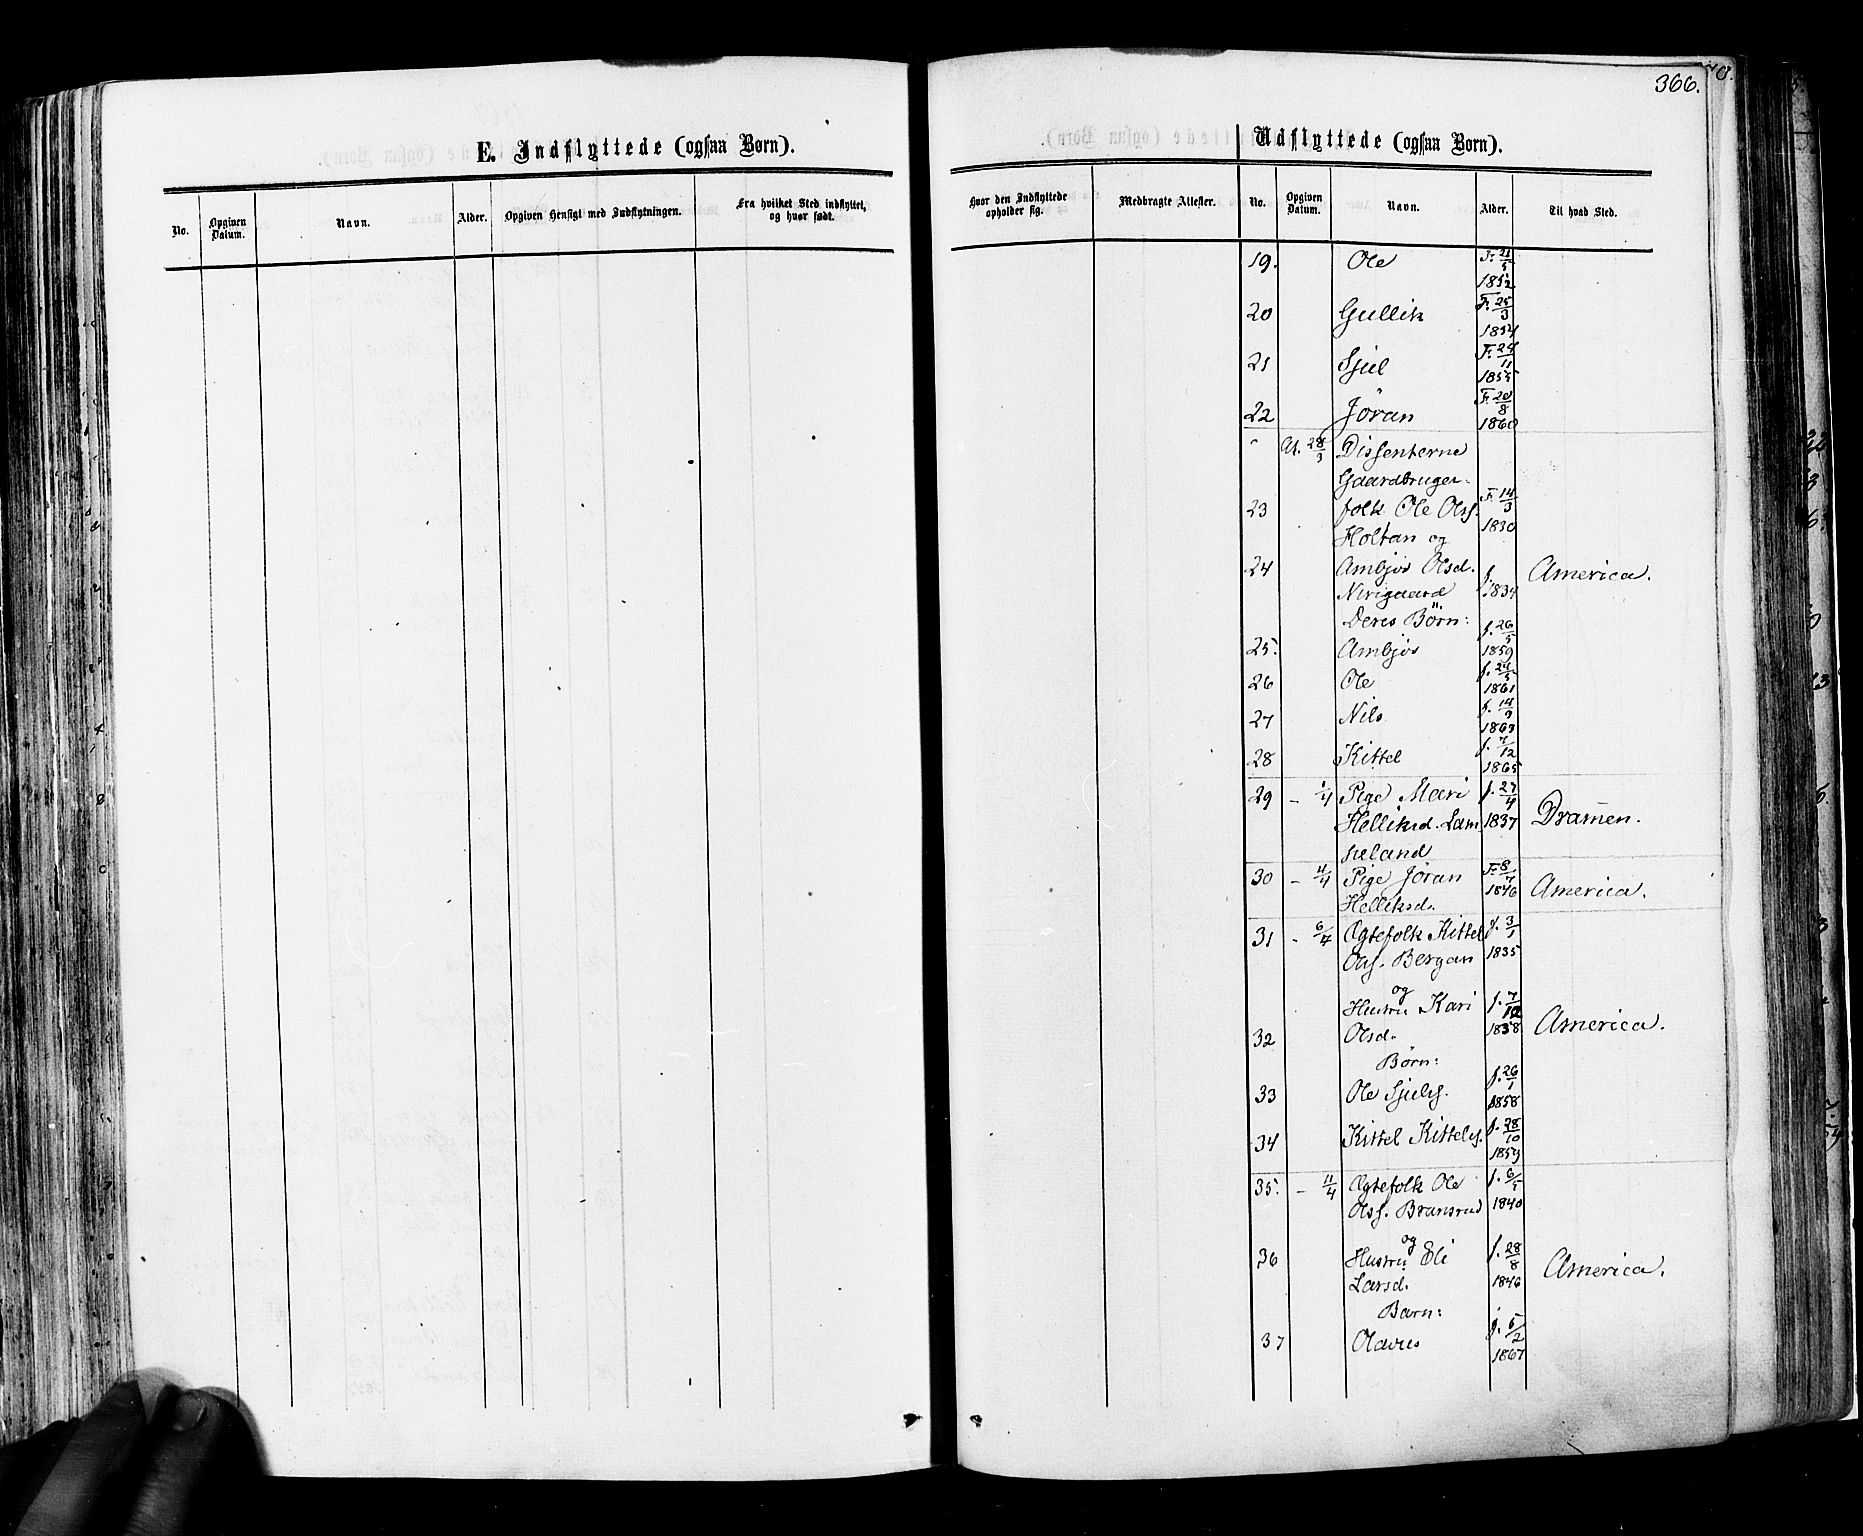 366.
E. Indflyttede (ogsaa Børn).
No.
Opgiven Datum.
Navn.
Alder.
Opgiven Hensigt med Indflytningen.
Fra hvilket Sted indflyttet, og hvor født.
Udflyttede (ogsaa Børn).
Hvor den Indflyttede opholder sig.
Medbragte Attester.
No.
Opgiven Datum.
Navn.
Alder.
Til hvad Sted.
19. Ole F. 21/5
1852
20 Gullik F. 25/3
1854
21 Sjul F. 24/11
1855
22 Jöran F. 20/8
1860
" 28/3 Dissenterne
Gaardbruger-
23 folk Ole Olss. F. 14/3
Holtan og 1830
24 Ambjør Olsd. f. America.
1834
Deres Børn:
25. Ambjør f. 26/5
1859
26 Ole f. 24/5
1861
27 Nils f. 14/9
1863
28 Kittel f. 7/12
1865
29 - 1/4 Pige Mari f. 27/4
Helliksd. Lam 1837 Dramen.
heland
30 - 4/4 Pige Jöran F. 8/7
Helliksd. 1840 America.
31 - 6/4 Ægtefolk Kittel f. 3/1
Ols. Bergan 1835
og
Hustru Kari f. 7/12
32 Olsd. 1838 America.
Børn:
33 Ole Sjuls. f. 26/1
1858
34 Kittel Kittels. f. 28/10
1859
35. - 11/4 Ægtefolk Ole f. 6/5
Olss. Bransrud 1840
og
36 Hustru Eli f. 28/8
Larsd. 1846 America.
Barn:
37 Olaves f. 5/2
1867